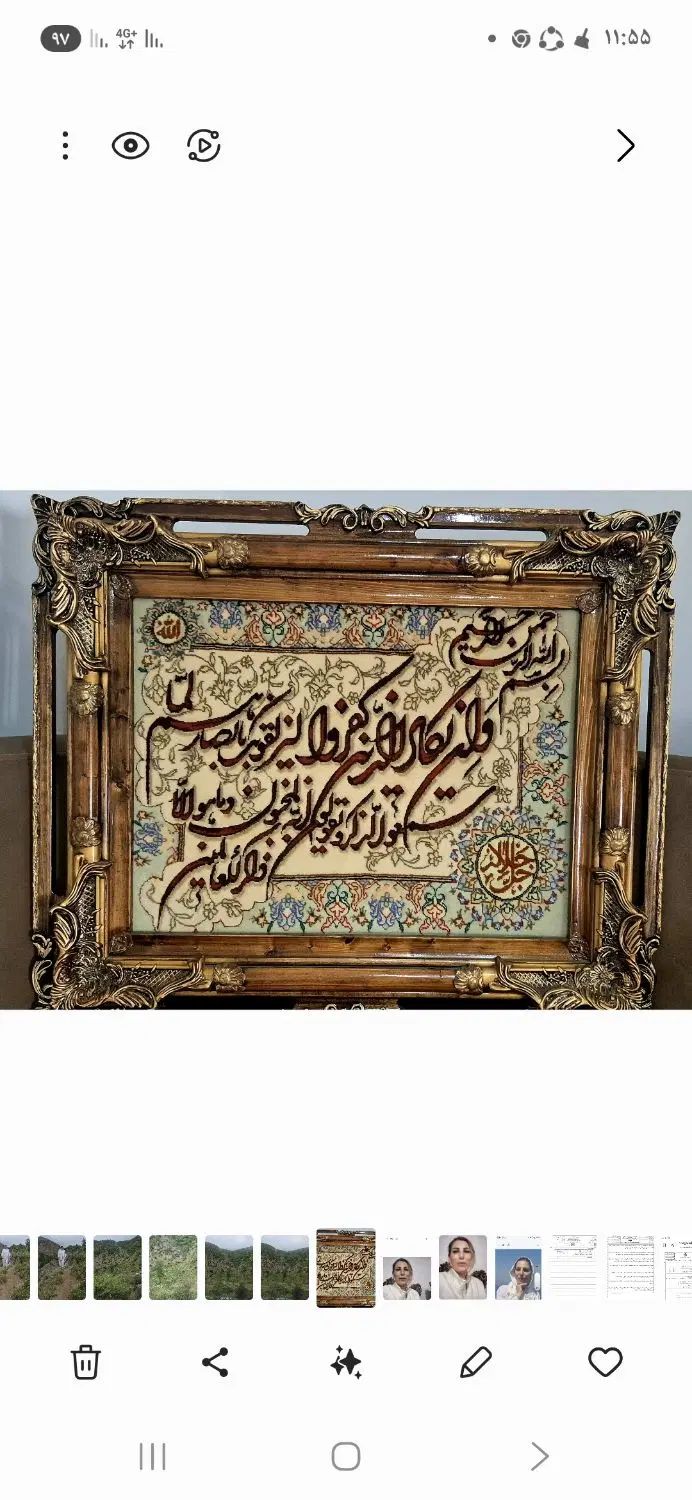 ۹۷ 4G+ ۱۱:۵۵
الله
بسم الله الرحمن الرحیم
وان یکاد الذین کفروا لیزلقونک بابصارهم لما
سمعوا الذکر ویقولون انه لمجنون وماهو الا
ذکر للعالمین
جل جلاله